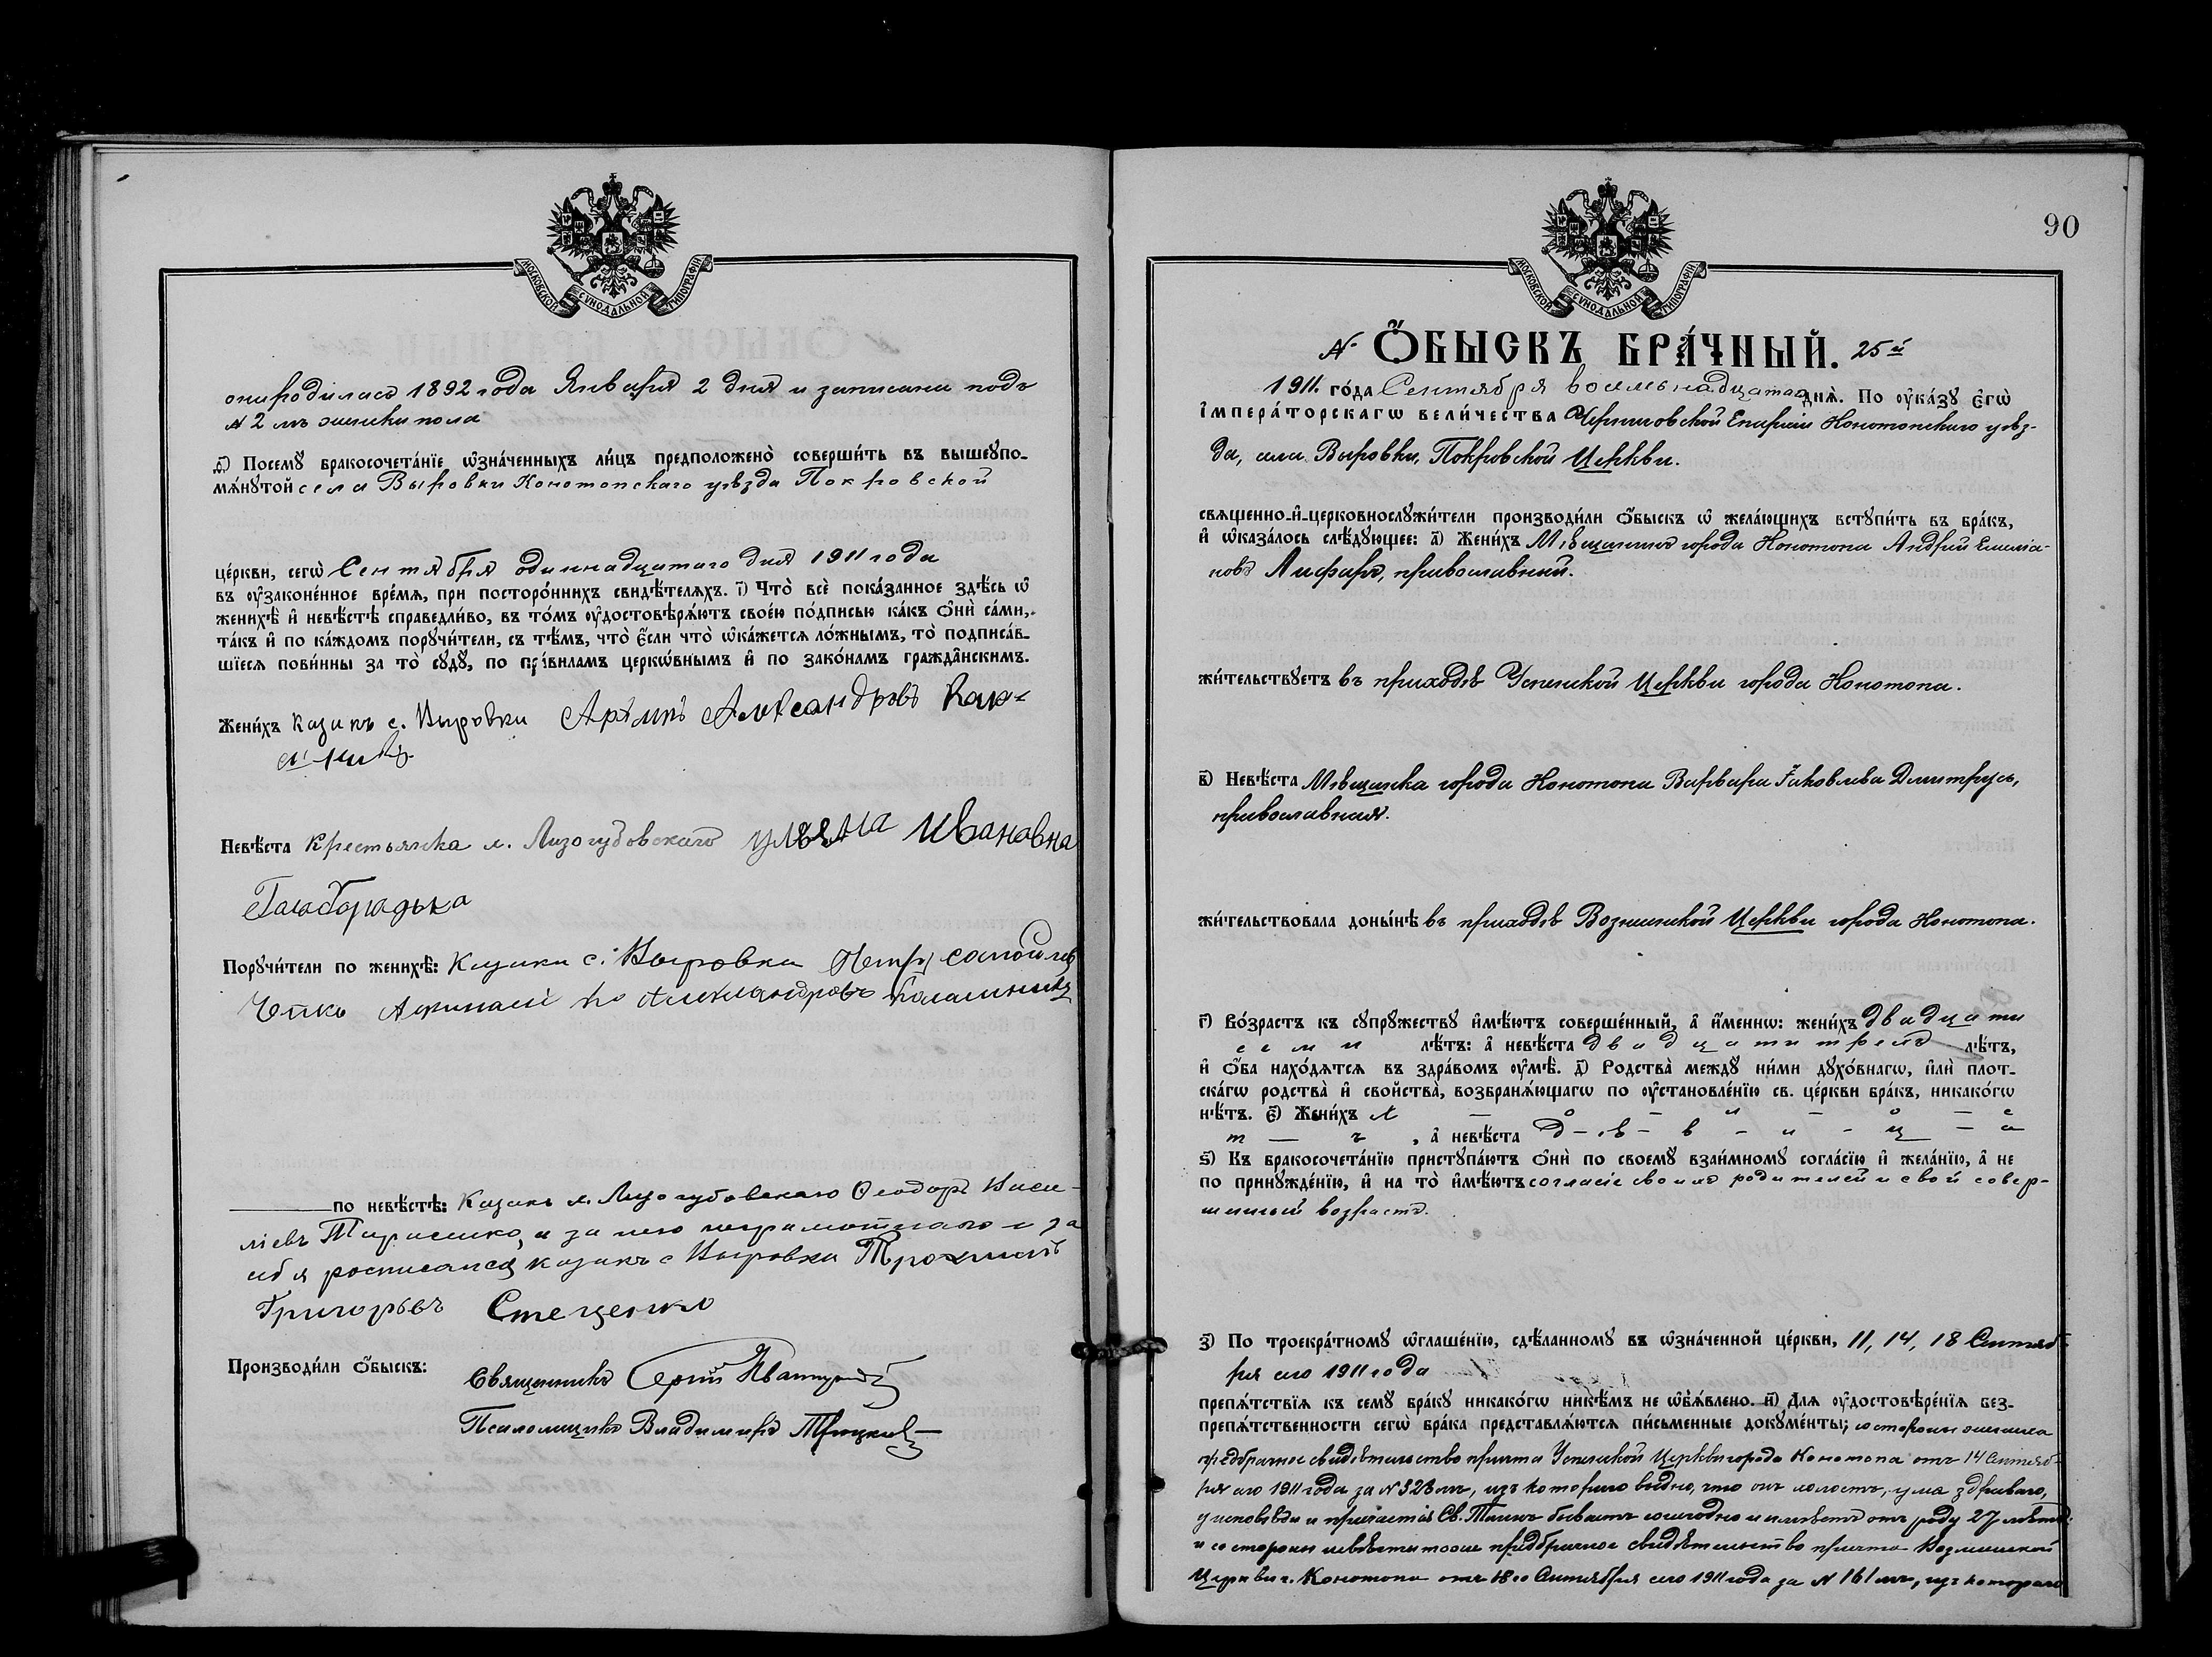 МОСКОВСКОЙ СѴНОДАЛЬНОЙ ТИПОГРАФІИ
она родилась 1892 года Января 2 дня и записана подъ
№ 2 мъ женска пола
Посемꙋ бракосочета́нїе ѡ҆зна́ченныхъ ли́цъ предположено̀ соверши́ть въ вышеꙋпо-
мѧ́нꙋтой села Выровки Конотопскаго уѣзда Покровской
це́ркви, сегѡ̀ Сентября одиннадцатаго дня 1911 года
въ ᲂу҆законе́нное вре́мѧ, при посторо́ннихъ свидѣ́телѧхъ. і҃) Что̀ всѐ пока́занное здѣ́сь ѡ҆
женихѣ̀ и҆ невѣ́стѣ справедли́во, въ то́мъ ᲂу҆достовѣрѧ́ютъ свое́ю по́дписью ка́къ ѻ҆нѝ са́ми,
та́къ и҆ по ка́ждомъ порꙋчи́тели, съ тѣ́мъ, что̀ є҆́сли что̀ ѡ҆ка́жетсѧ ло́жнымъ, то̀ подписа́в-
шїесѧ пови́нны за то̀ сꙋдꙋ̀, по пра́виламъ церко́внымъ и҆ по зако́намъ гражда́нскимъ.
Жени́хъ казакъ с. Выровки Александровъ
Невѣ́ста Крестьянка м. Лизогубовскаго Ивановна
Порꙋчи́тели по женихѣ̀: Казаки с. Выровки Петръ
Александровъ
по невѣ́стѣ: Казакъ м. Лизогубовскаго Ѳеодоръ Васи-
ліевъ Тарасенко, а за него неграмотнаго и за
себя росписался казакъ с Выровки Трохимъ
Григорьевъ Стеценко
Производи́ли ѻ҆́быскъ: Священникъ Сергій
Псаломщикъ Владимиръ Троцкій
90
МОСКОВСКОЙ СѴНОДАЛЬНОЙ ТИПОГРАФІИ
№ Ѻ҆́БЫСКЪ БРА́ЧНЫЙ. 25й
1911. го́да Сентября восемьнадцатаго днѧ̀. По ᲂу҆ка́зꙋ є҆гѡ̀
І҆мпера́торскагѡ вели́чества Черниговской Епархіи Конотопскаго уѣз-
да, села Выровки, Покровской Церкви.
свѧще́нно-и҆-церковнослꙋжи́тели производи́ли ѻ҆́быскъ ѡ҆ жела́ющихъ встꙋпи́ть въ бра́къ,
и҆ ѡ҆каза́лось слѣ́дꙋющее: а҃) Жени́хъ Мѣщанинъ города Конотопа Андрей Емелiа-
новъ Лифарь, православный.
жи́тельствꙋетъ въ приходѣ Успенской Церкви города Конотопа.
в҃) Невѣ́ста Мѣщанка города Конотопа Варвара Іаковлева Димитрусь,
православная.
жи́тельствовала доны́нѣ въ приходѣ Вознесенской Церкви города Конотопа.
г҃) Во́зрастъ къ сꙋпрꙋ́жествꙋ и҆мѣ́ютъ соверше́нный, а҆ и҆́менно: жени́хъ двадцати
семи лѣ́тъ: а҆ невѣ́ста двадцати трехъ лѣ́тъ,
и҆ ѻ҆́ба нахо́дѧтсѧ въ здра́вомъ ᲂу҆мѣ̀. д҃) Родства̀ междꙋ̀ ни́ми дꙋхо́внагѡ, и҆лѝ плот-
ска́гѡ родства̀ и҆ свойства̀, возбранѧ́ющагѡ по ᲂу҆становле́нїю св. це́ркви бра́къ, никако́гѡ
нѣ́тъ. є҃) Жени́хъ холосtъ, а҆ невѣ́ста д-ѣ-в-и-ц-а
ѕ҃) Къ бракосочета́нїю пристꙋпа́ютъ ѻ҆нѝ по своемꙋ̀ взаи́мномꙋ согла́сїю и҆ жела́нїю, а҆ не
по принꙋжде́нїю, и҆ на то̀ и҆мѣ́ютъ согласіе своихъ родителей и свой совер-
шенный возрастъ.
з҃) По троекра́тномꙋ ѡ҆глаше́нїю, сдѣ́ланномꙋ въ ѡ҆зна́ченной це́ркви, 11, 14, 18 Сентяб-
ря сего 1911 года
препѧ́тствїѧ къ семꙋ̀ бра́кꙋ никако́гѡ никѣ́мъ не ѡ҆б̾ѧ́влено. и҃) Длѧ ᲂу҆достовѣре́нїѧ без-
препѧ́тственности сегѡ̀ бра́ка представлѧ́ютсѧ пи́сьменные докꙋме́нты; со стороны жениха
предбрачное свидѣтельство причта Успенской Церкви города Конотопа отъ 14 Сентяб-
ря сего 1911 года за № 323 мъ, изъ котораго видно, что онъ холостъ, ума здраваго,
у исповѣди и причастія Св. Таинъ бываетъ ежегодно и имѣетъ отъ роду 27 лѣтъ;
и со стороны невѣсты тоже предбрачное свидѣтельство причта Вознесенской
Церкви г. Конотопа отъ 18го Сентября сего 1911 года за № 161 мъ, изъ котораго